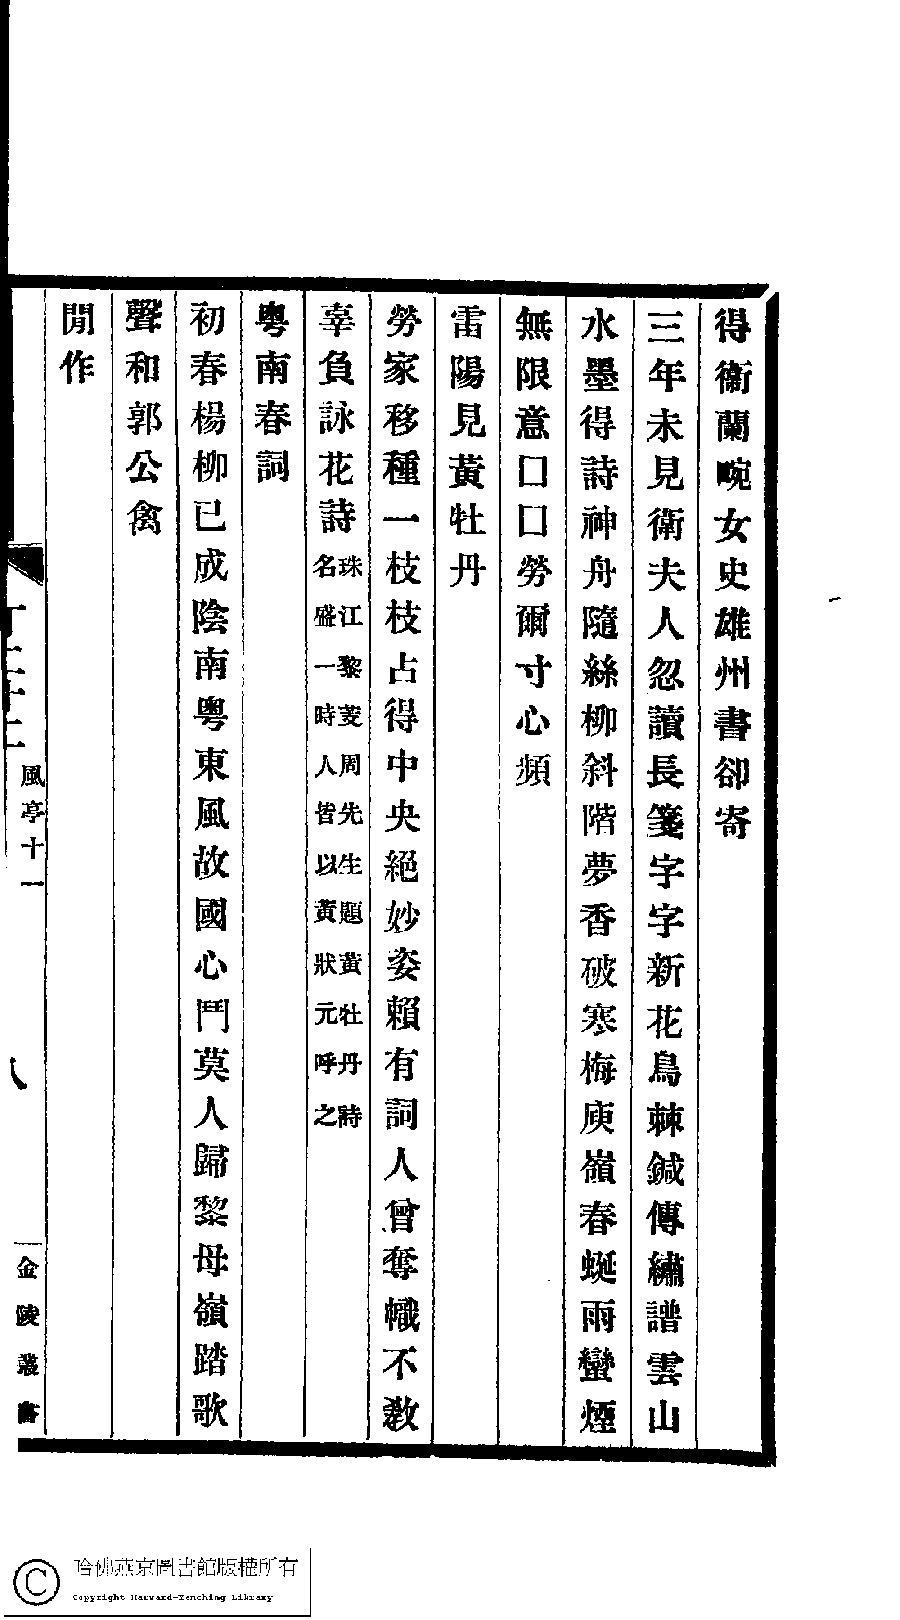 得衞蘭畹女史雄州書卻寄
三年未見衞夫人忽讀長箋字字新花鳥棘鍼傳繡譜雲山
水墨得詩神舟隨絲柳斜階夢香破寒梅庾嶺春蜒雨蠻煙
無限意囗囗勞爾寸心頻
雷陽見黃牡丹
勞家移種一枝枝占得中央絕妙姿賴有詞人曾奪幟不敎
辜負詠花詩珠江黎菱周先生題黃牡丹詩
名盛一時人皆以黃狀元呼之
粵南春詞
初春楊柳已成陰南粵東風故國心鬥莫人歸黎母嶺踏歌
聲和郭公禽
閒作
風亭十一
八
金陵叢書
哈佛燕京圖書館版權所有
Copyright Harvard-Yenching Library